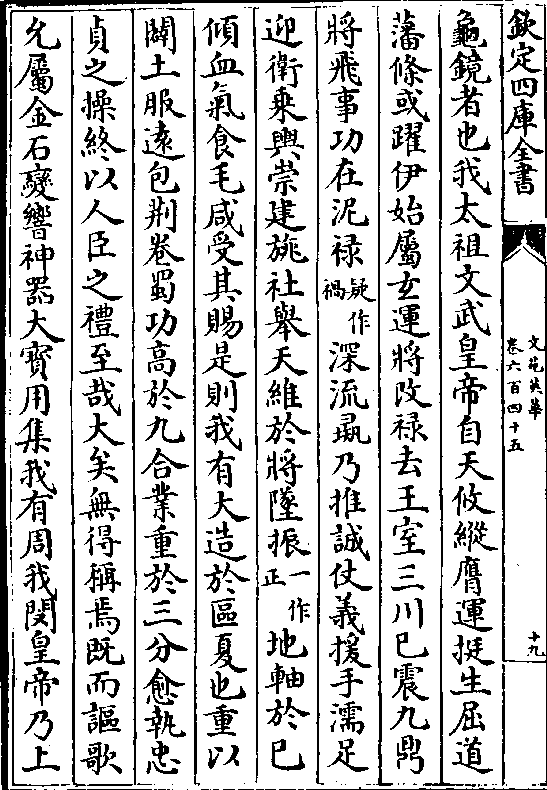 欽定四庫全書
文苑英華
卷六百四十五
十九
龜鏡者也我太祖文武皇帝自天攸縱膺運挺生屈道
藩條或躍伊始屬玄運將改禄去王室三川已震九鼎
將飛事功在泥禄疑作禍深流彘乃推誠仗義援手濡足
迎衛乗輿崇建旒社舉天維於將墜振一作正地軸於已
傾血氣食毛咸受其賜是則我有大造於區夏也重以
闢土服逺包荆卷蜀功髙於九合業重於三分愈執忠
貞之操終以人臣之禮至哉大矣無得稱焉既而謳歌
允屬金石變響神器大寳用集我有周我閔皇帝乃上